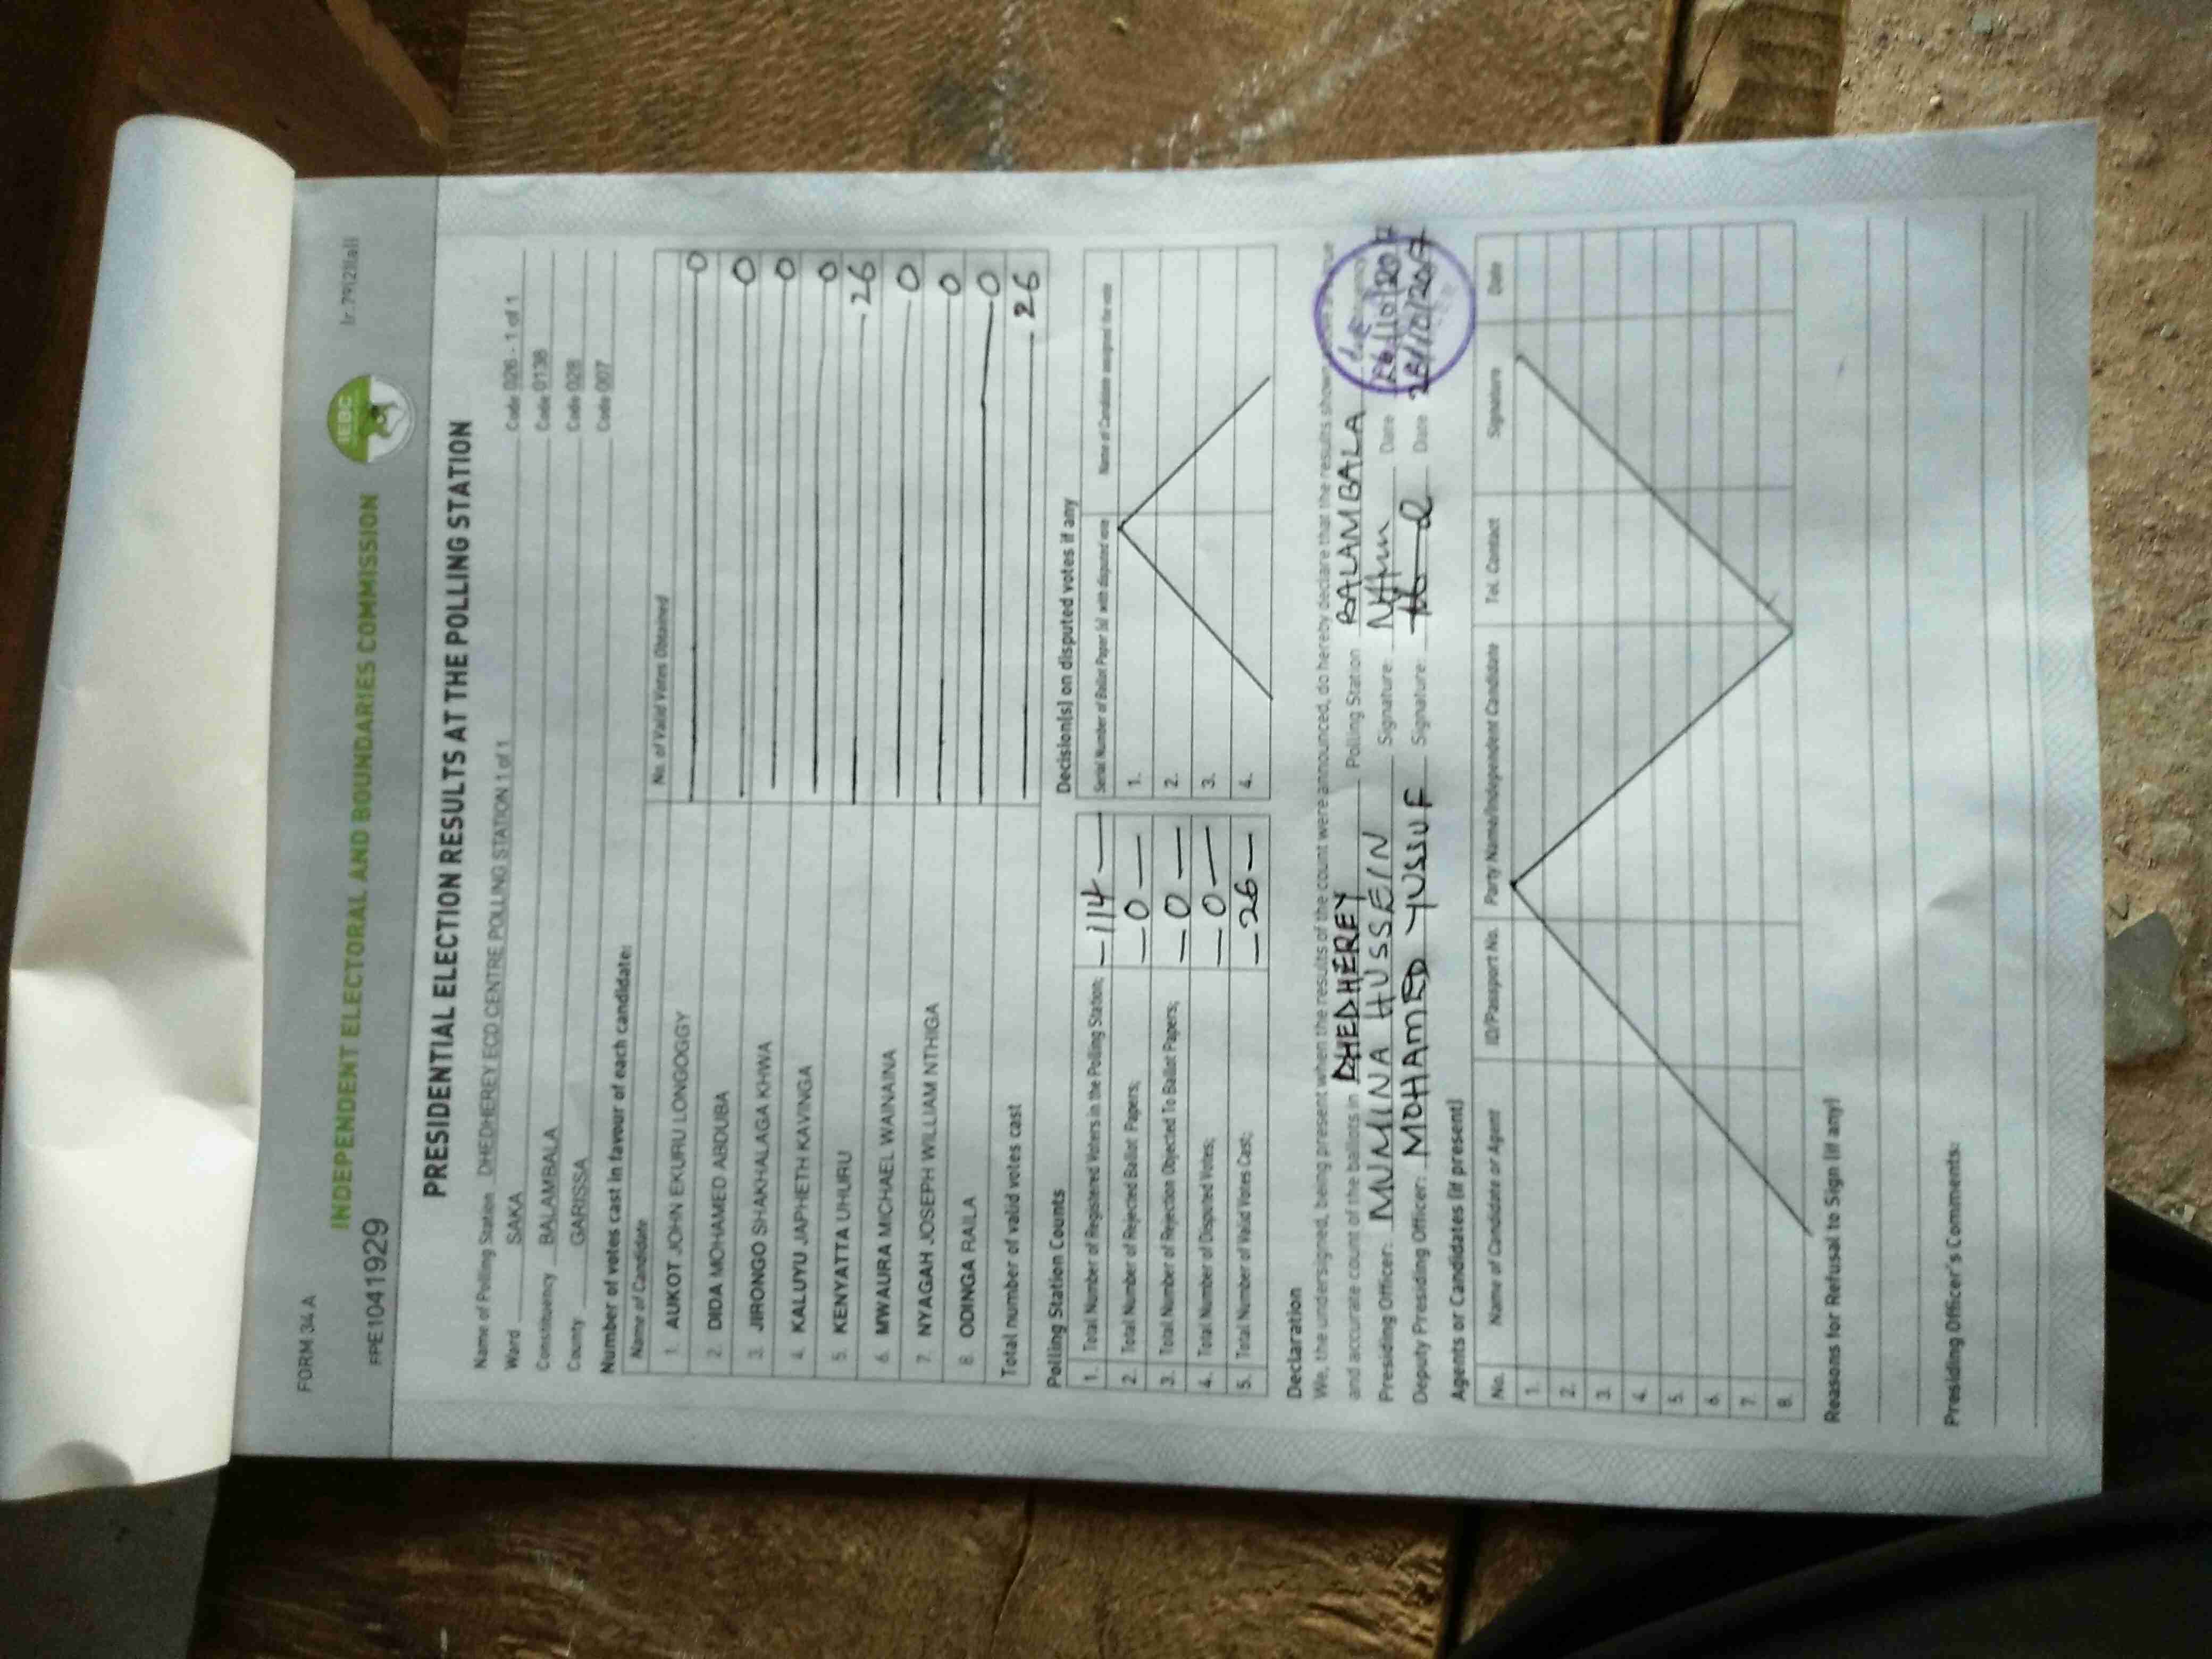 FORM 34A
INDEPENDENT ELECTORAL AND BOUNDARIES COMMISSION
IEBC
PPE1041929
PRESIDENTIAL ELECTION RESULTS AT THE POLLING STATION
Name of Polling Station DHEDHEREY ECD CENTRE POLLING STATION 1 of 1 Code 026 - 1 of 1
Ward SAKA Code 0138
Constituency BALAMBALA Code 028
County GARISSA Code 007
Number of votes cast in favour of each candidate:
Name of Candidate No. of Valid Votes Obtained
1. AUKOT JOHN EKURU LONGOGGY 0
2. DIDA MOHAMED ABDUBA 0
3. JIRONGO SHAKHALAGA KHWA 0
4. KALUYU JAPHETH KAVINGA 0
5. KENYATTA UHURU 26
6. MWAURA MICHAEL WAINAINA 0
7. NYAGAH JOSEPH WILLIAM NTHIGA 0
8. ODINGA RAILA 0
Total number of valid votes cast 26
Polling Station Counts
1. Total Number of Registered Voters in the Polling Station; 114
2. Total Number of Rejected Ballot Papers; 0
3. Total Number of Rejection Objected To Ballot Papers; 0
4. Total Number of Disputed Votes; 0
5. Total Number of Valid Votes Cast; 26
Decision(s) on disputed votes if any
Serial Number of Ballot Paper (s) with disputed vote Name of Candidate assigned the vote
1.
2.
3.
4.
Declaration
We, the undersigned, being present when the results of the count were announced, do hereby declare that the results shown
and accurate count of the ballots in DHEDHEREY Polling Station BALAMBALA
Presiding Officer: MUMINA HUSSEIN Signature: Date 26/10/2017
Deputy Presiding Officer: MOHAMED YUSSUF Signature: Date 26/10/2017
Agents or Candidates (if present)
No. Name of Candidate or Agent ID/Passport No. Party Name/Independent Candidate Tel. Contact Signature Date
1.
2.
3.
4.
5.
6.
7.
8.
Reasons for Refusal to Sign (if any)
Presiding Officer's Comments: